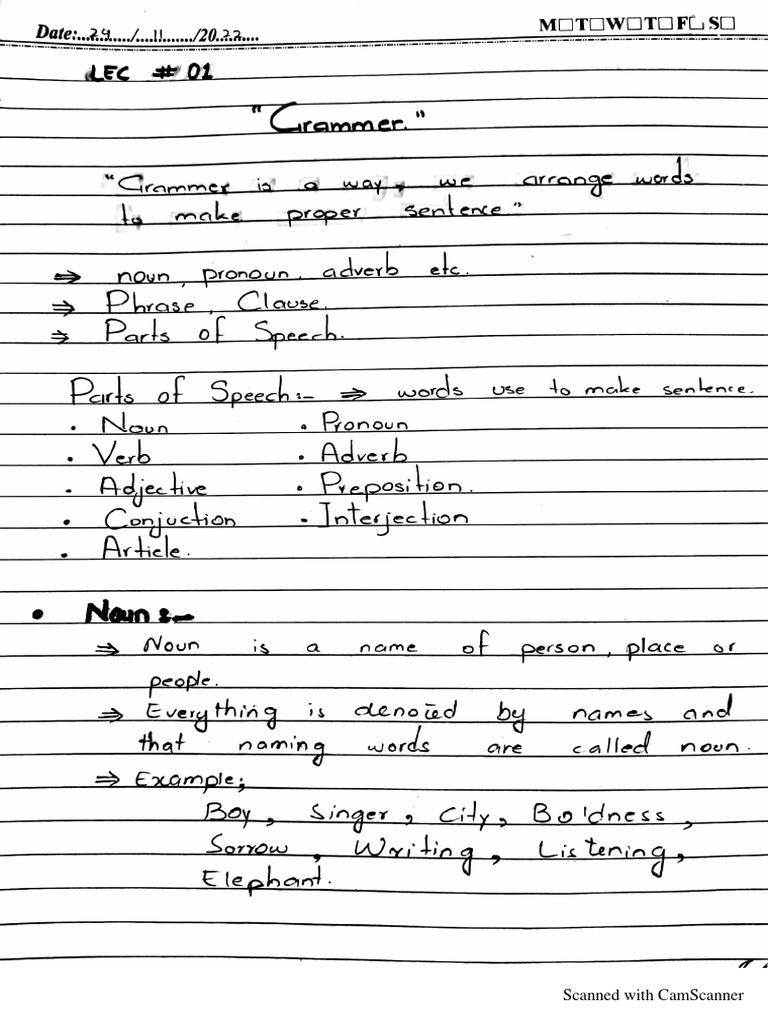 Date:...24...../....11......./2022....
M□T□W□T□F□S□
LEC # 01
"Grammer."
"Grammer is a way, we arrange words
to make proper sentence"
⇒ noun, pronoun, adverb etc.
⇒ Phrase, Clause.
⇒ Parts of Speech.
Parts of Speech:- ⇒ words use to make sentence.
• Noun • Pronoun
• Verb • Adverb
• Adjective • Preposition.
• Conjuction • Interjection
• Article.
• Noun:-
⇒ Noun is a name of person, place or
people.
⇒ Everything is denoted by names and
that naming words are called noun.
⇒ Example;
Boy, Singer, City, Boldness,
Sorrow, Writing, Listening,
Elephant.
Scanned with CamScanner